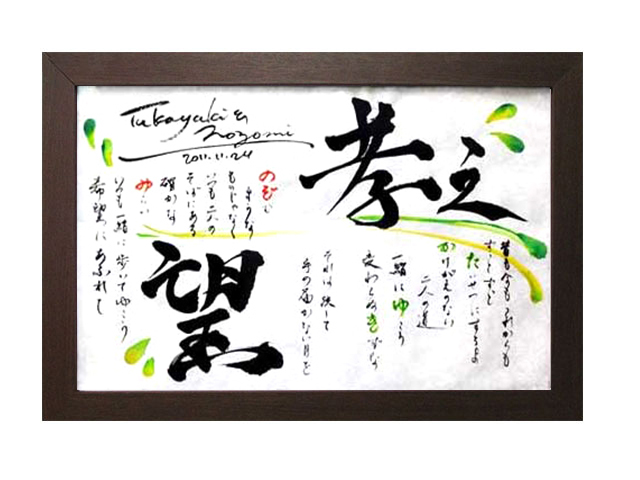 Takayuki &
Nozomi
2011.11.24
孝之
昔も今も これからも
ずっとずっと
たいせつにするよ
かけがえのない
二人の道
一緒にゆこう
変わらぬきずな
それは決して
手の届かない月を
望
のぞむ
ような
ものじゃなく
いつも二人の
そばにある
確かな
みらい
いつも一緒に歩いてゆこう
希望にあふれし